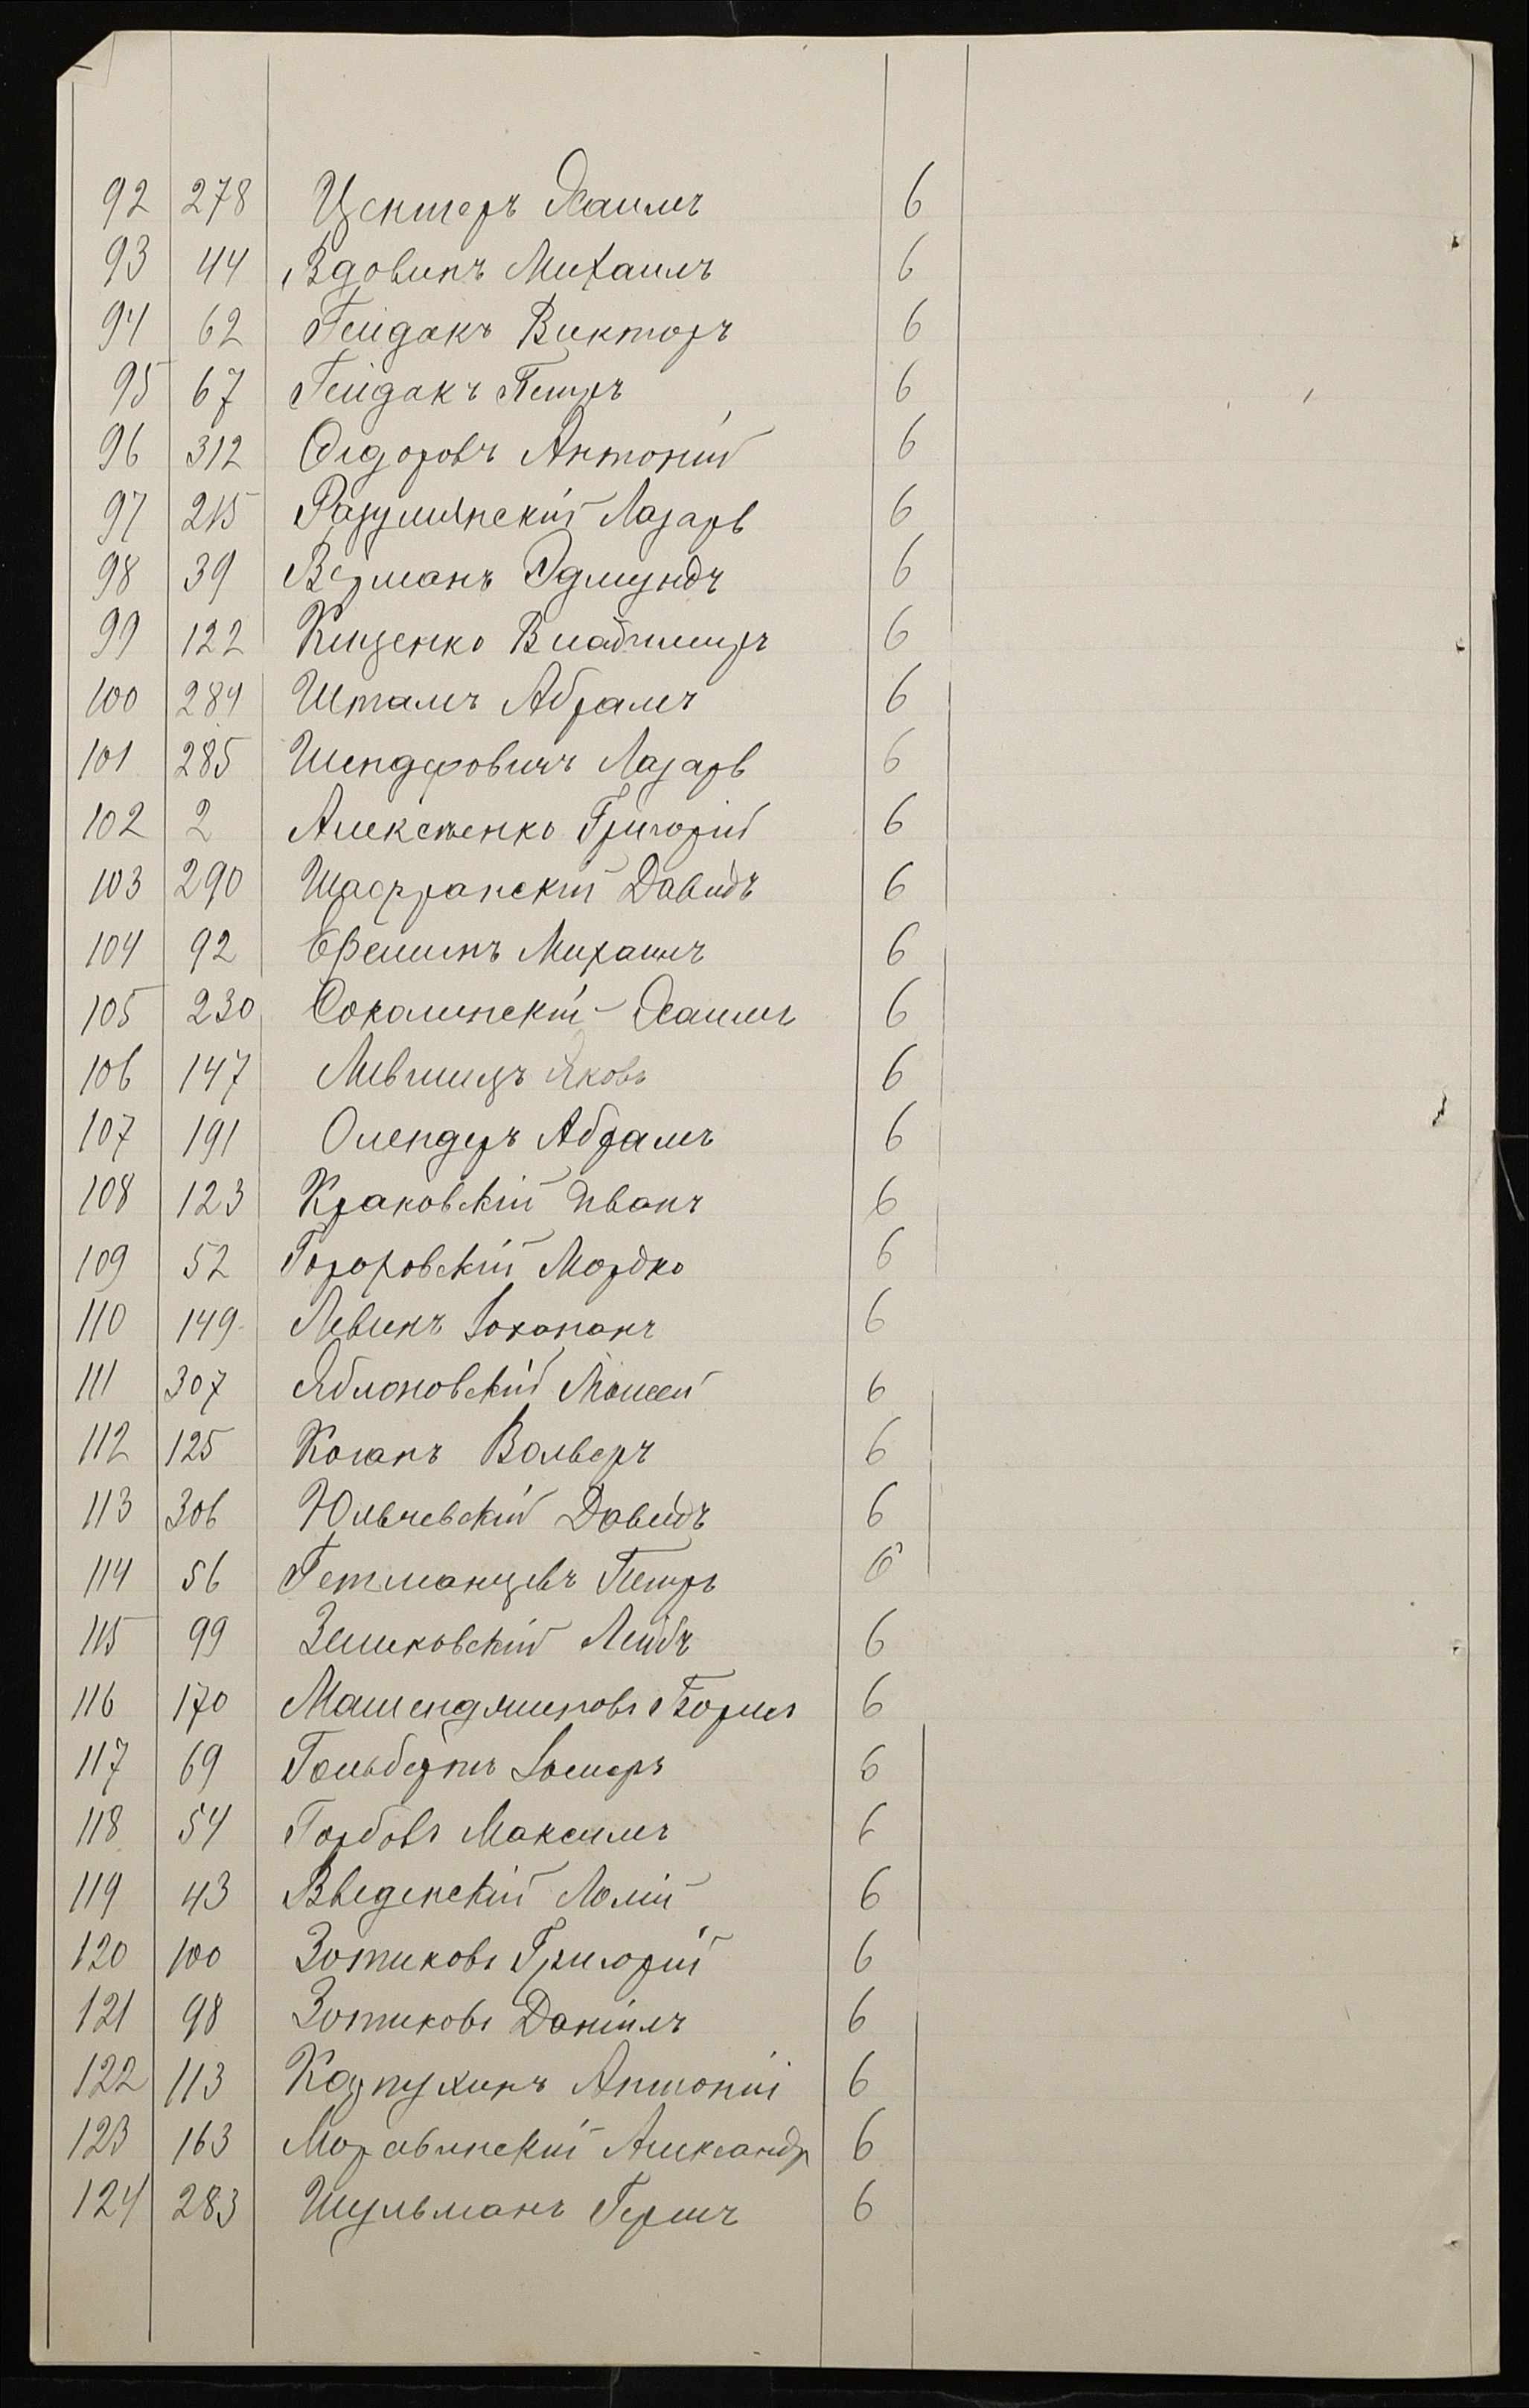 92 278 Центеръ Хаимъ 6
93 44 Вдовинъ Михаилъ 6
94 62 Гейдакъ Викторъ 6
95 67 Гейдакъ Петръ 6
96 312 Ѳедоровъ Антоній 6
97 215 Разумянскій Лазарь 6
98 39 Верманъ Эдмундъ 6
99 122 Кищенко Владимиръ 6
100 284 Шталь Абрамъ 6
101 285 Шендеровичъ Лазарь 6
102 2 Алексѣенко Григорій 6
103 290 Шафранскій Давидъ 6
104 92 Ефеминъ Михаилъ 6
105 230 Соколинскій Хаимъ 6
106 147 Лившицъ Яковъ 6
107 191 Олендеръ Абрамъ 6
108 123 Краковскій Иванъ 6
109 52 Гороховскій Мордко 6
110 149 Левинъ Іохананъ 6
111 307 Яблоновскій Моисей 6
112 125 Коганъ Вольверъ 6
113 306 Юльчевскій Давидъ 6
114 56 Гетманцевъ Петръ 6
115 99 Зеликовскій Лейбъ 6
116 170 Машендлишовъ Борисъ 6
117 69 Гольбертъ 6
118 54 Горбовъ Максимъ 6
119 43 Введенскій 6
120 100 Зотиковъ Григорій 6
121 98 Зотиковъ Даніилъ 6
122 113 Карпухинъ Антоній 6
123 163 Моравинскій Александръ 6
124 283 Шульманъ Гершъ 6